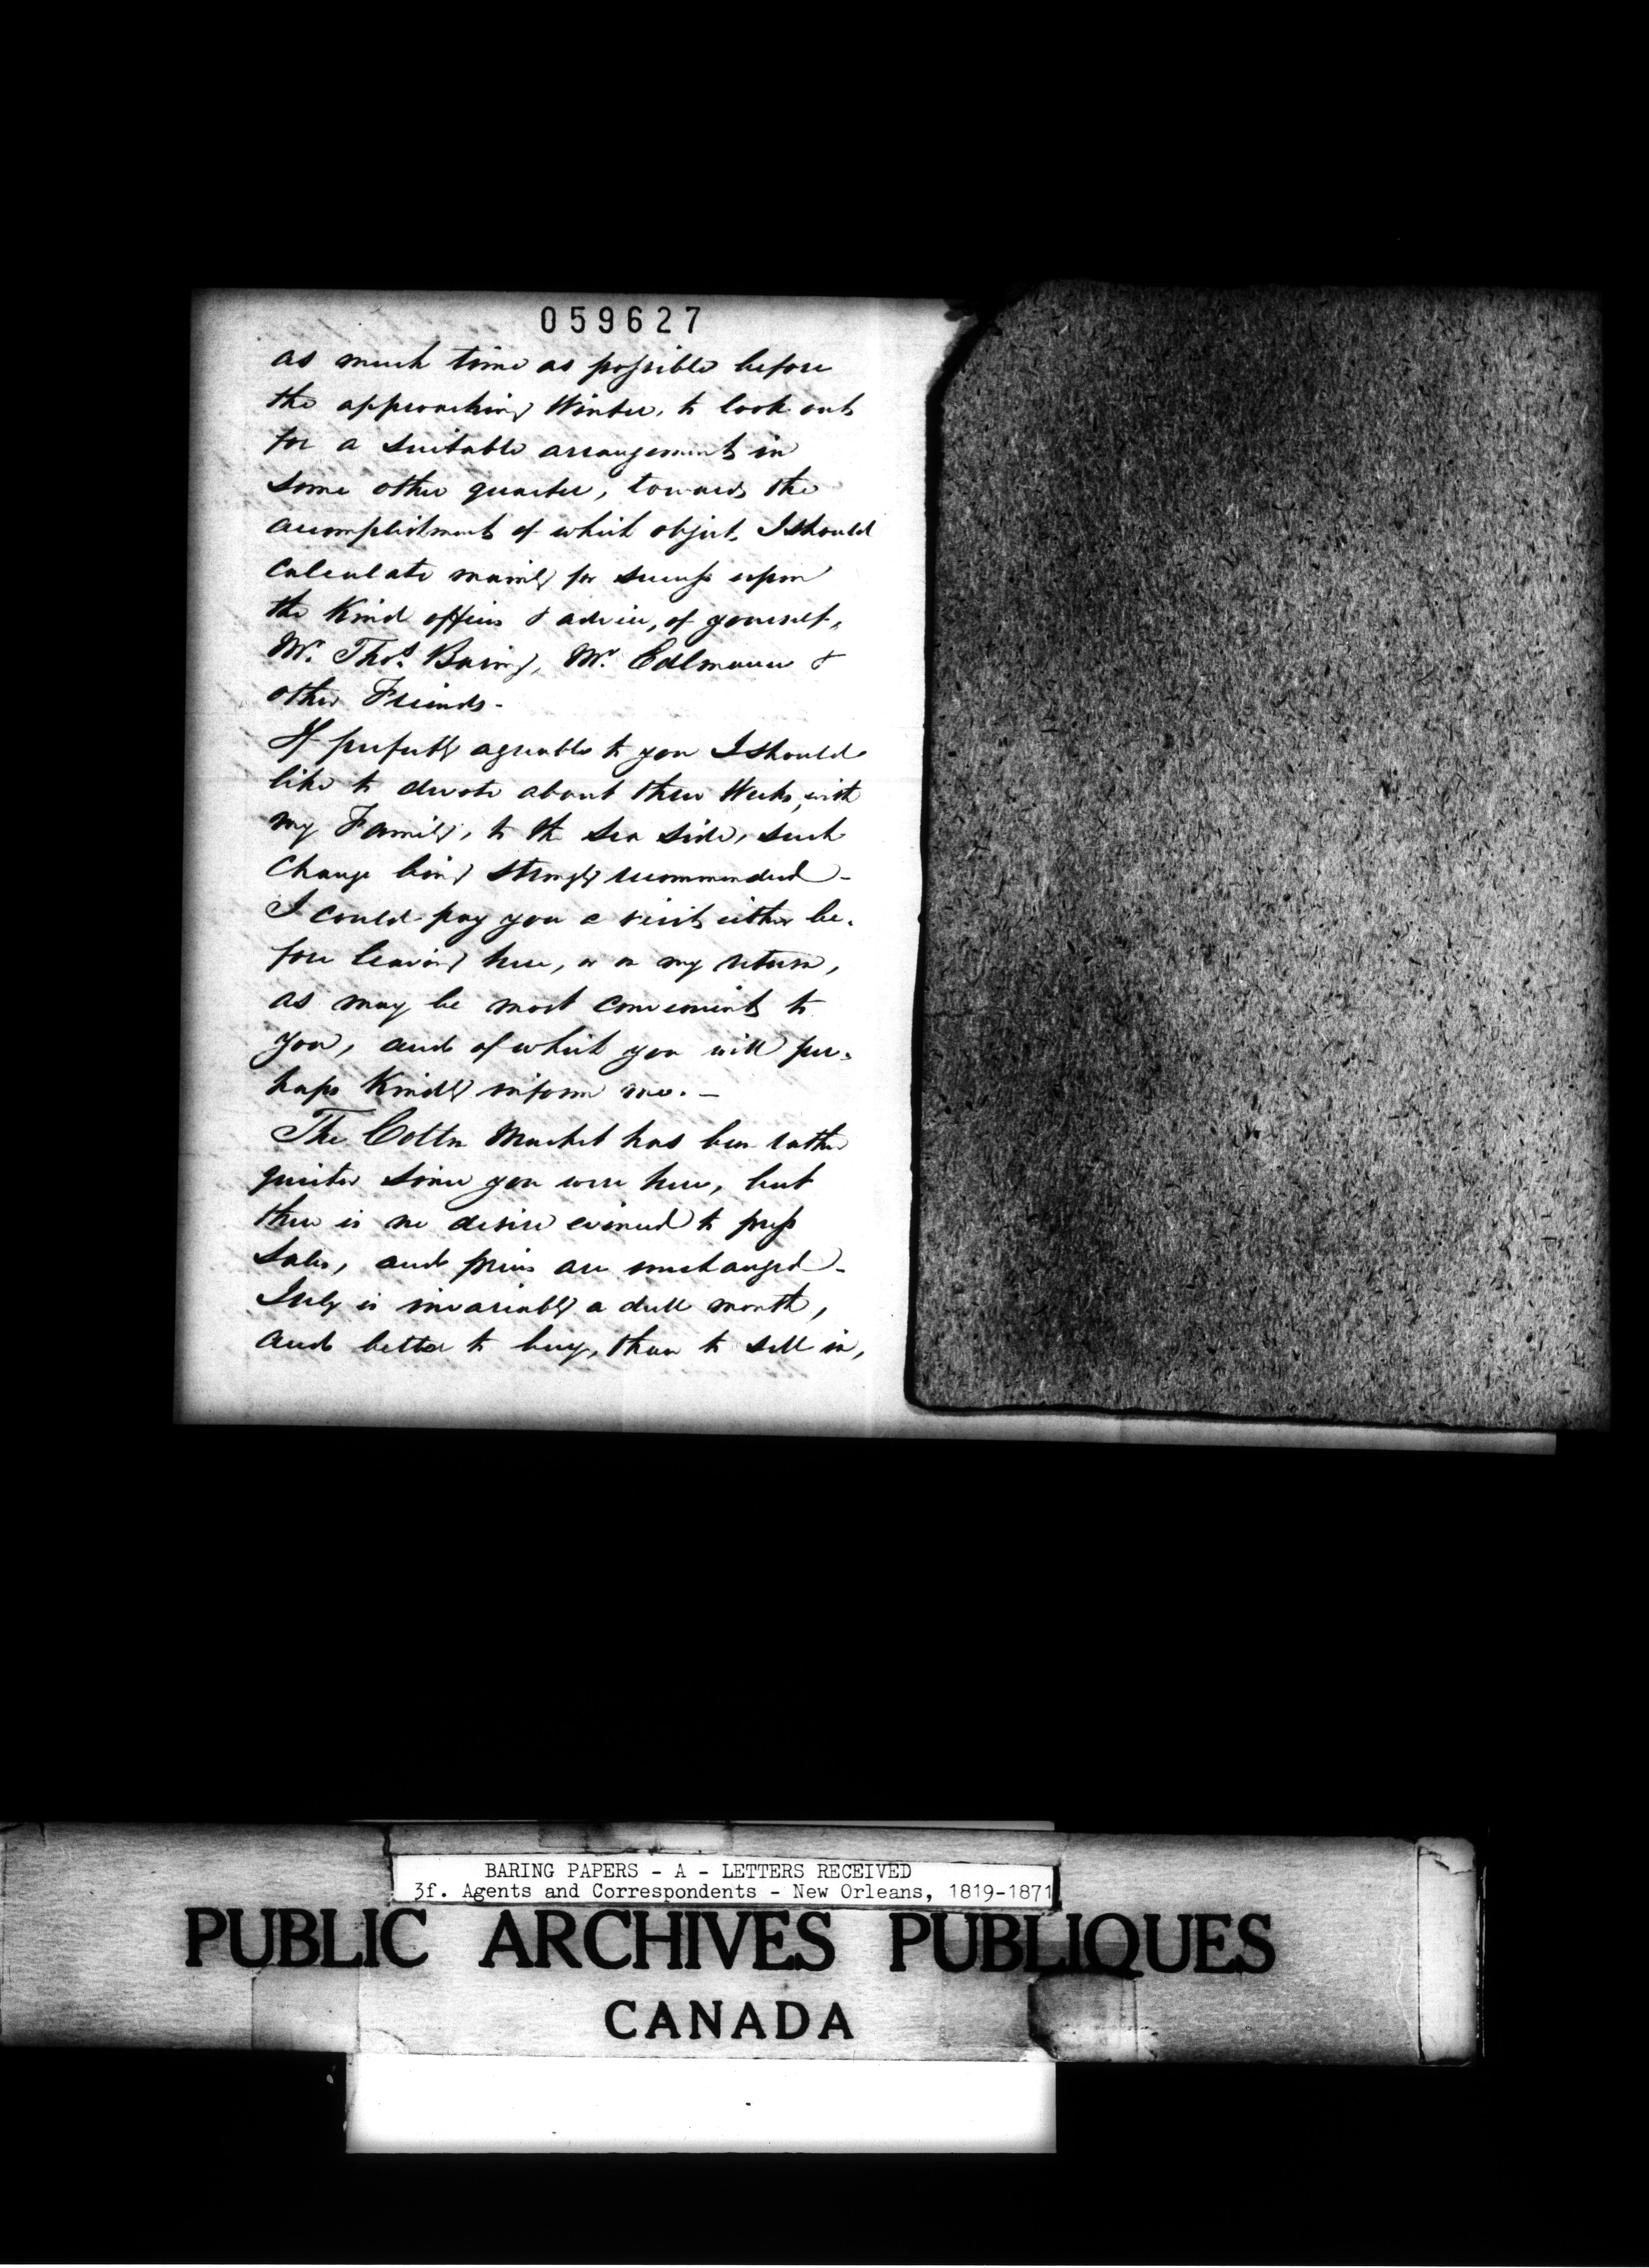 059627
as much time as possible before
the approaching Winter, to look out
for a suitable arrangement in
some other quarter, towards the
accomplishment of which object, I should
calculate mainly for success upon
the Kind offices & advice, of yourself,
Mr. Thos. Baring, Mr. Edlmann &
other Friends -
If perfectly agreeable to you I should
like to devote about three Weeks, with
my Family, to the sea side, such
change being strongly recommended -
I could pay you a visit either be-
fore leaving here, or on my return,
as may be most convenient to
you, and of which you will per-
haps Kindly inform me. -
The Cotton Market has been rather
quieter since you were here, but
there is no desire evinced to press
Sales, and prices are unchanged -
July is invariably a dull month,
and better to buy, than to sell in,
BARING PAPERS - A - LETTERS RECEIVED
3f. Agents and Correspondents - New Orleans, 1819-1871
PUBLIC ARCHIVES PUBLIQUES
CANADA